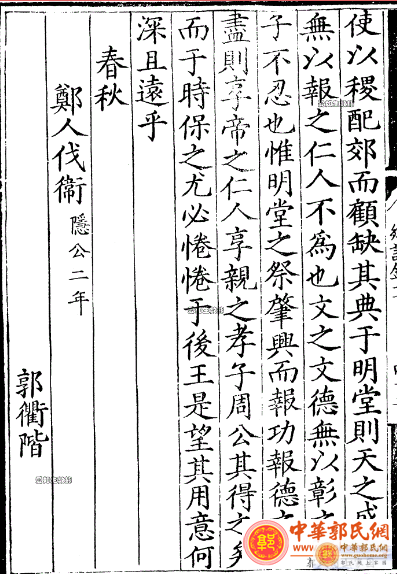 使以稷配郊而顧缺其典于明堂則天之
無以報之仁人不為也文之文德無以彰
子不忍也惟明堂之祭肇興而報功報德
盡則享帝之仁人享親之孝子周公其得之矣
而于時保之尤必惓惓于後王是望其用意何
深且遠乎
春秋
鄭人伐衞 隱公二年
郭衢階
中華郭氏網
中华郭氏网